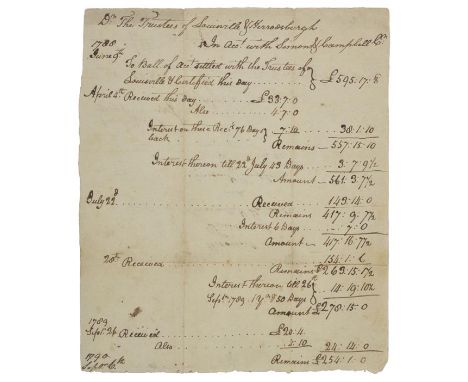 Dr. The Trustees of Louisville & Harrodsburgh
In Acct. with Simon & Campbell Co.
1788
June 9th To Ball. of Acct. settled with the Trustees of
Louisville & Certified this day } £595.17.8
April 4th Received this day £33.7.0
Also 4.7.0
Interest on these Recd. 76 Days back } 7.10 38.1.10
Remains 557.15.10
Interest thereon till 22d July 43 Days 3.7.9½
Amount 561.3.7½
July 22d Received 143.14.0
Remains 417.9.7½
Interest 6 Days 7.0
Amount 417.16.7½
28th Received 154.1.6
Remains £263.15.1½
Interest thereon till 26th
Septr. 789. 1 Yr. & 50 Days } 14.19.10½
Amount £278.15.0
1789
Septr. 26 Received £20.4
Also 4.10 24.14.0
1790
Septr. 6th Remains £254.1.0